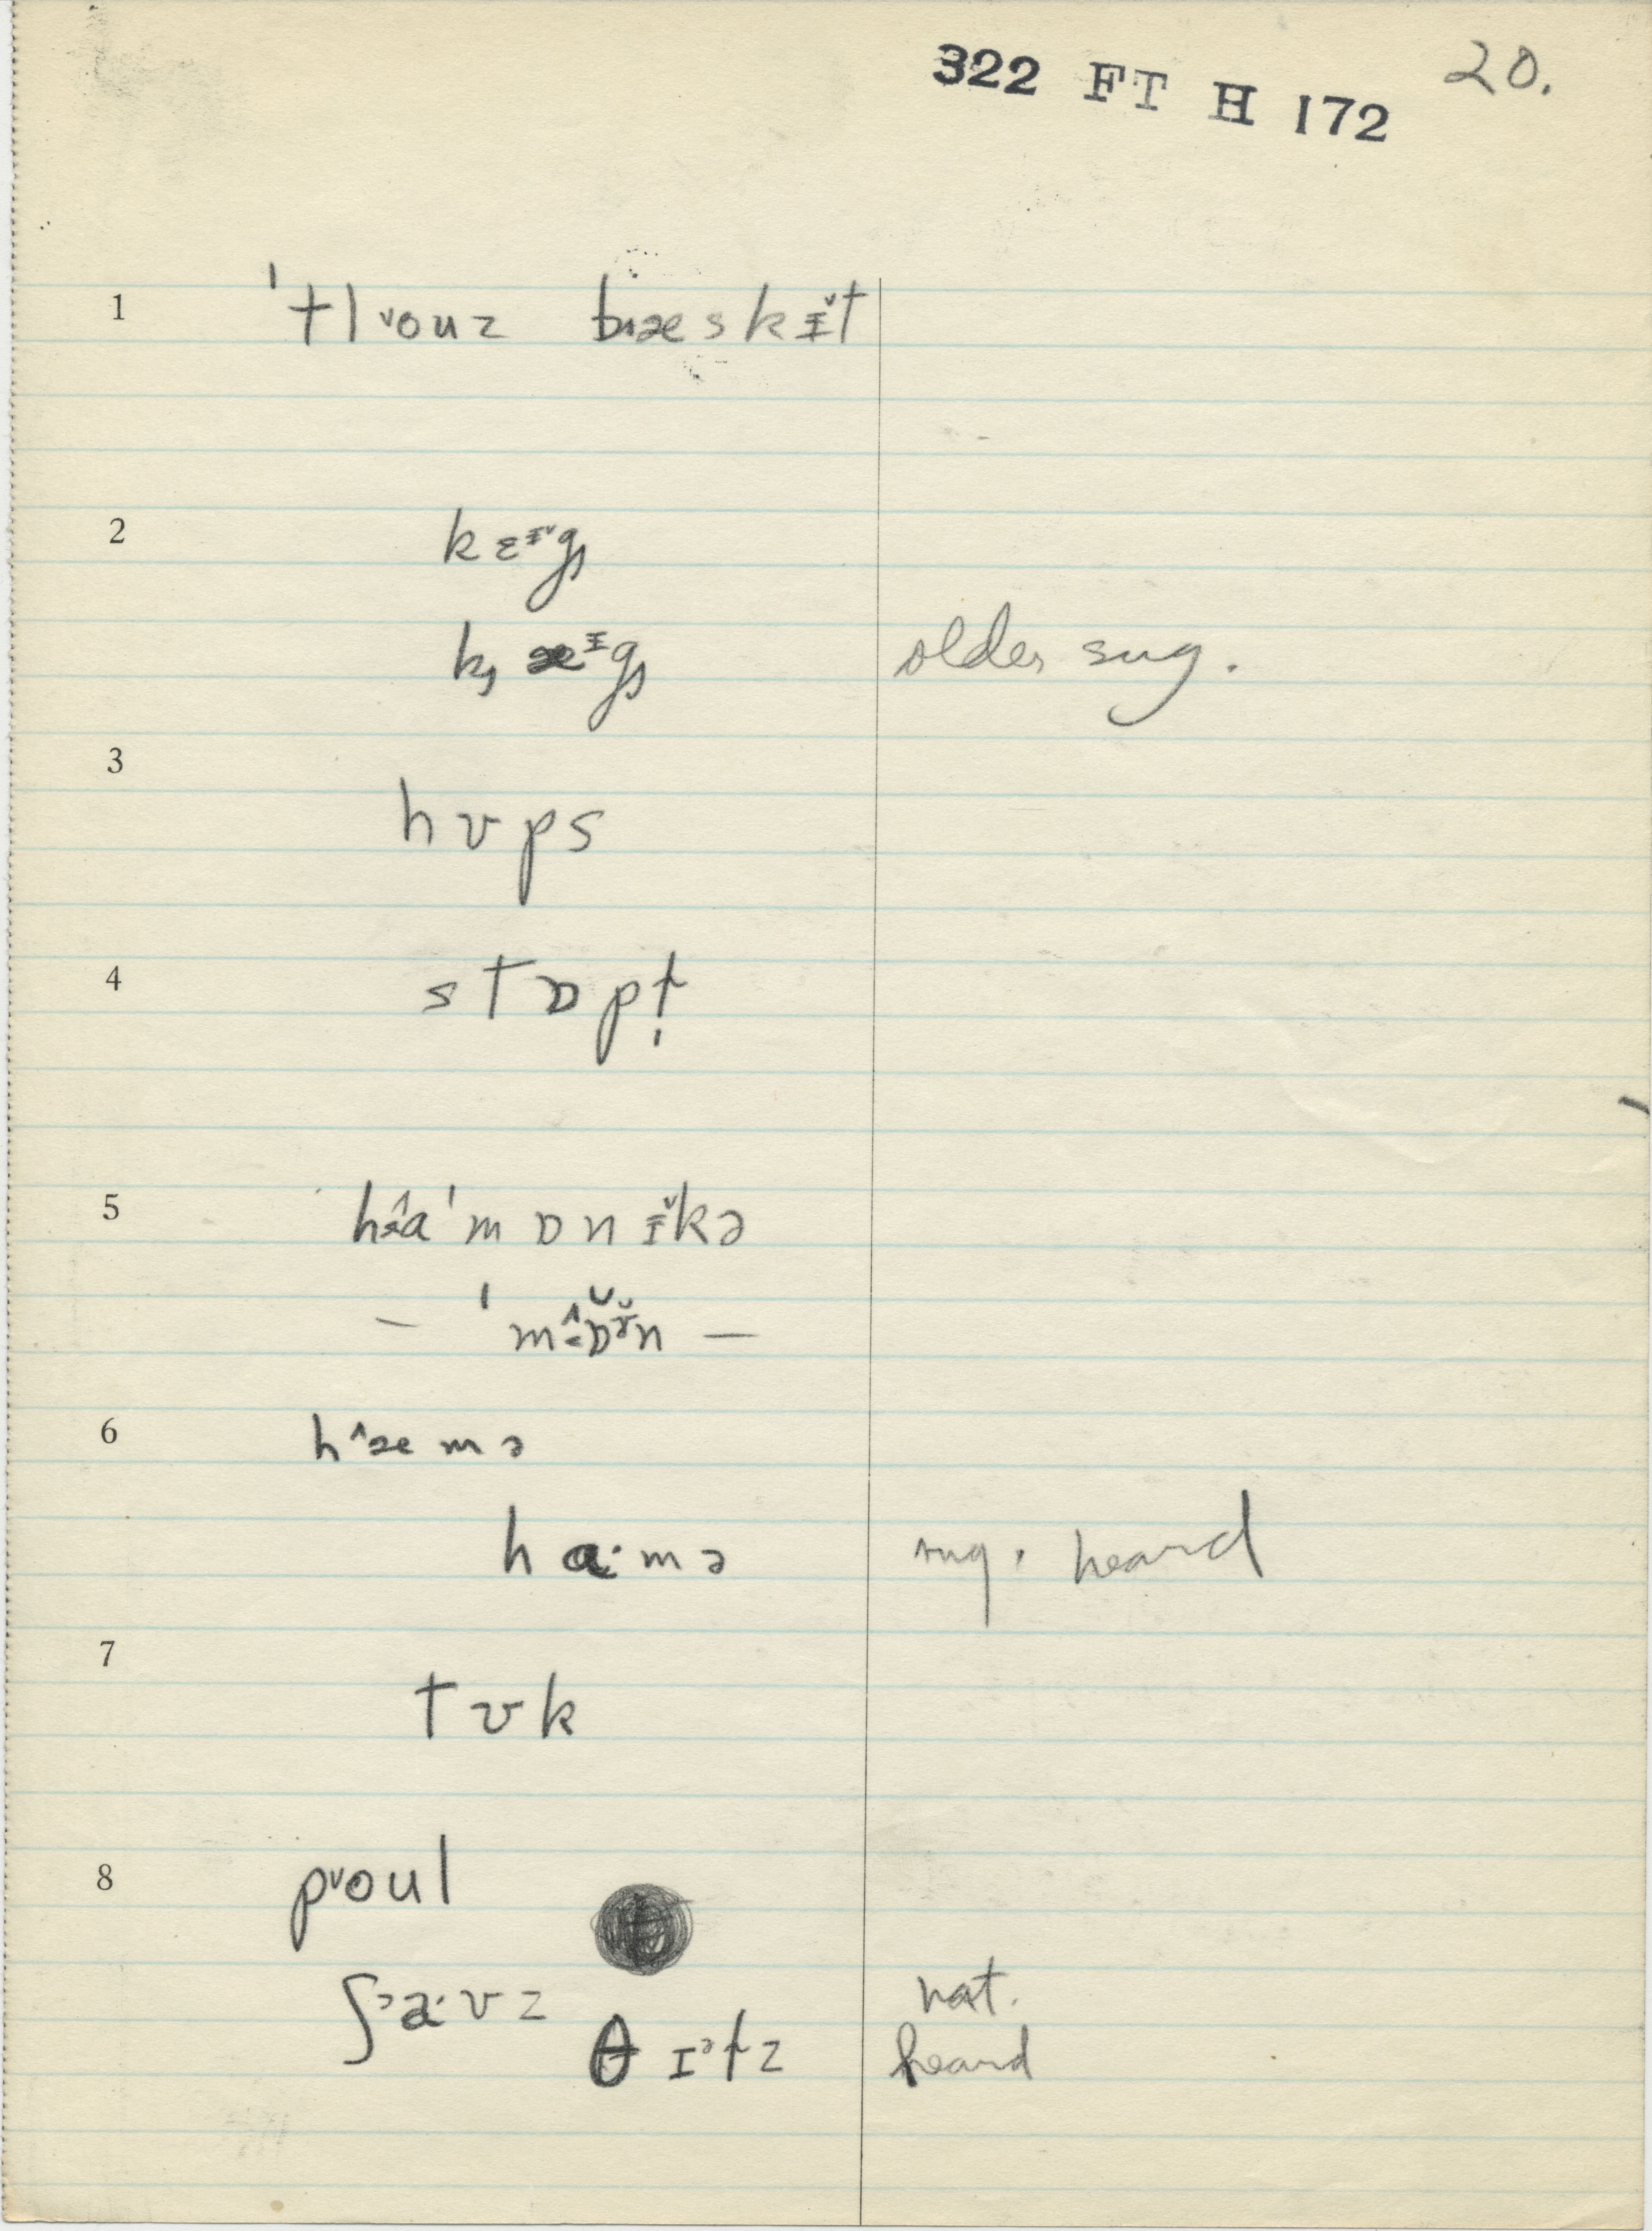 322 FT H 172
20.
1 'tl˅ouz bɪæskɪ̆t
2 kɛᶦ˅g
k, æᶦg older sug.
3 hʊps
4 stɒpt̩
5 hɑ'mɒnɪ̆kə
— 'mɒ̆n —
6 h^æmə
haˑmə sug. heard
7 tʊk
8 p˅oul
ʃᵊaˑvz nat.
θɪᵊtz heard